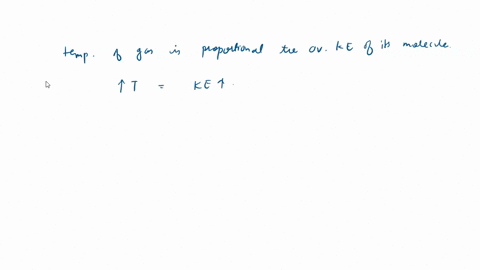 temp. of gas is proportional the av. KE of its molecule.
↑ T = KE ↑